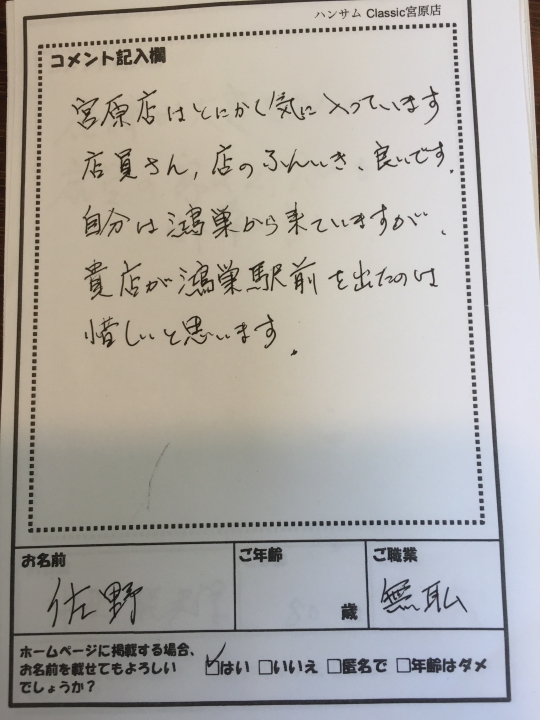 ハンサム Classic宮原店
コメント記入欄
宮原店はとにかく気に入っています
店員さん,店のふんいき、良いです.
自分は鴻巣から来ていますが、
貴店が鴻巣駅前を出たのは
惜しいと思います.
お名前
佐野
ご年齢
歳
ご職業
無職
ホームページに掲載する場合、
お名前を載せてもよろしい
でしょうか?
☑はい □いいえ □匿名で □年齢はダメ